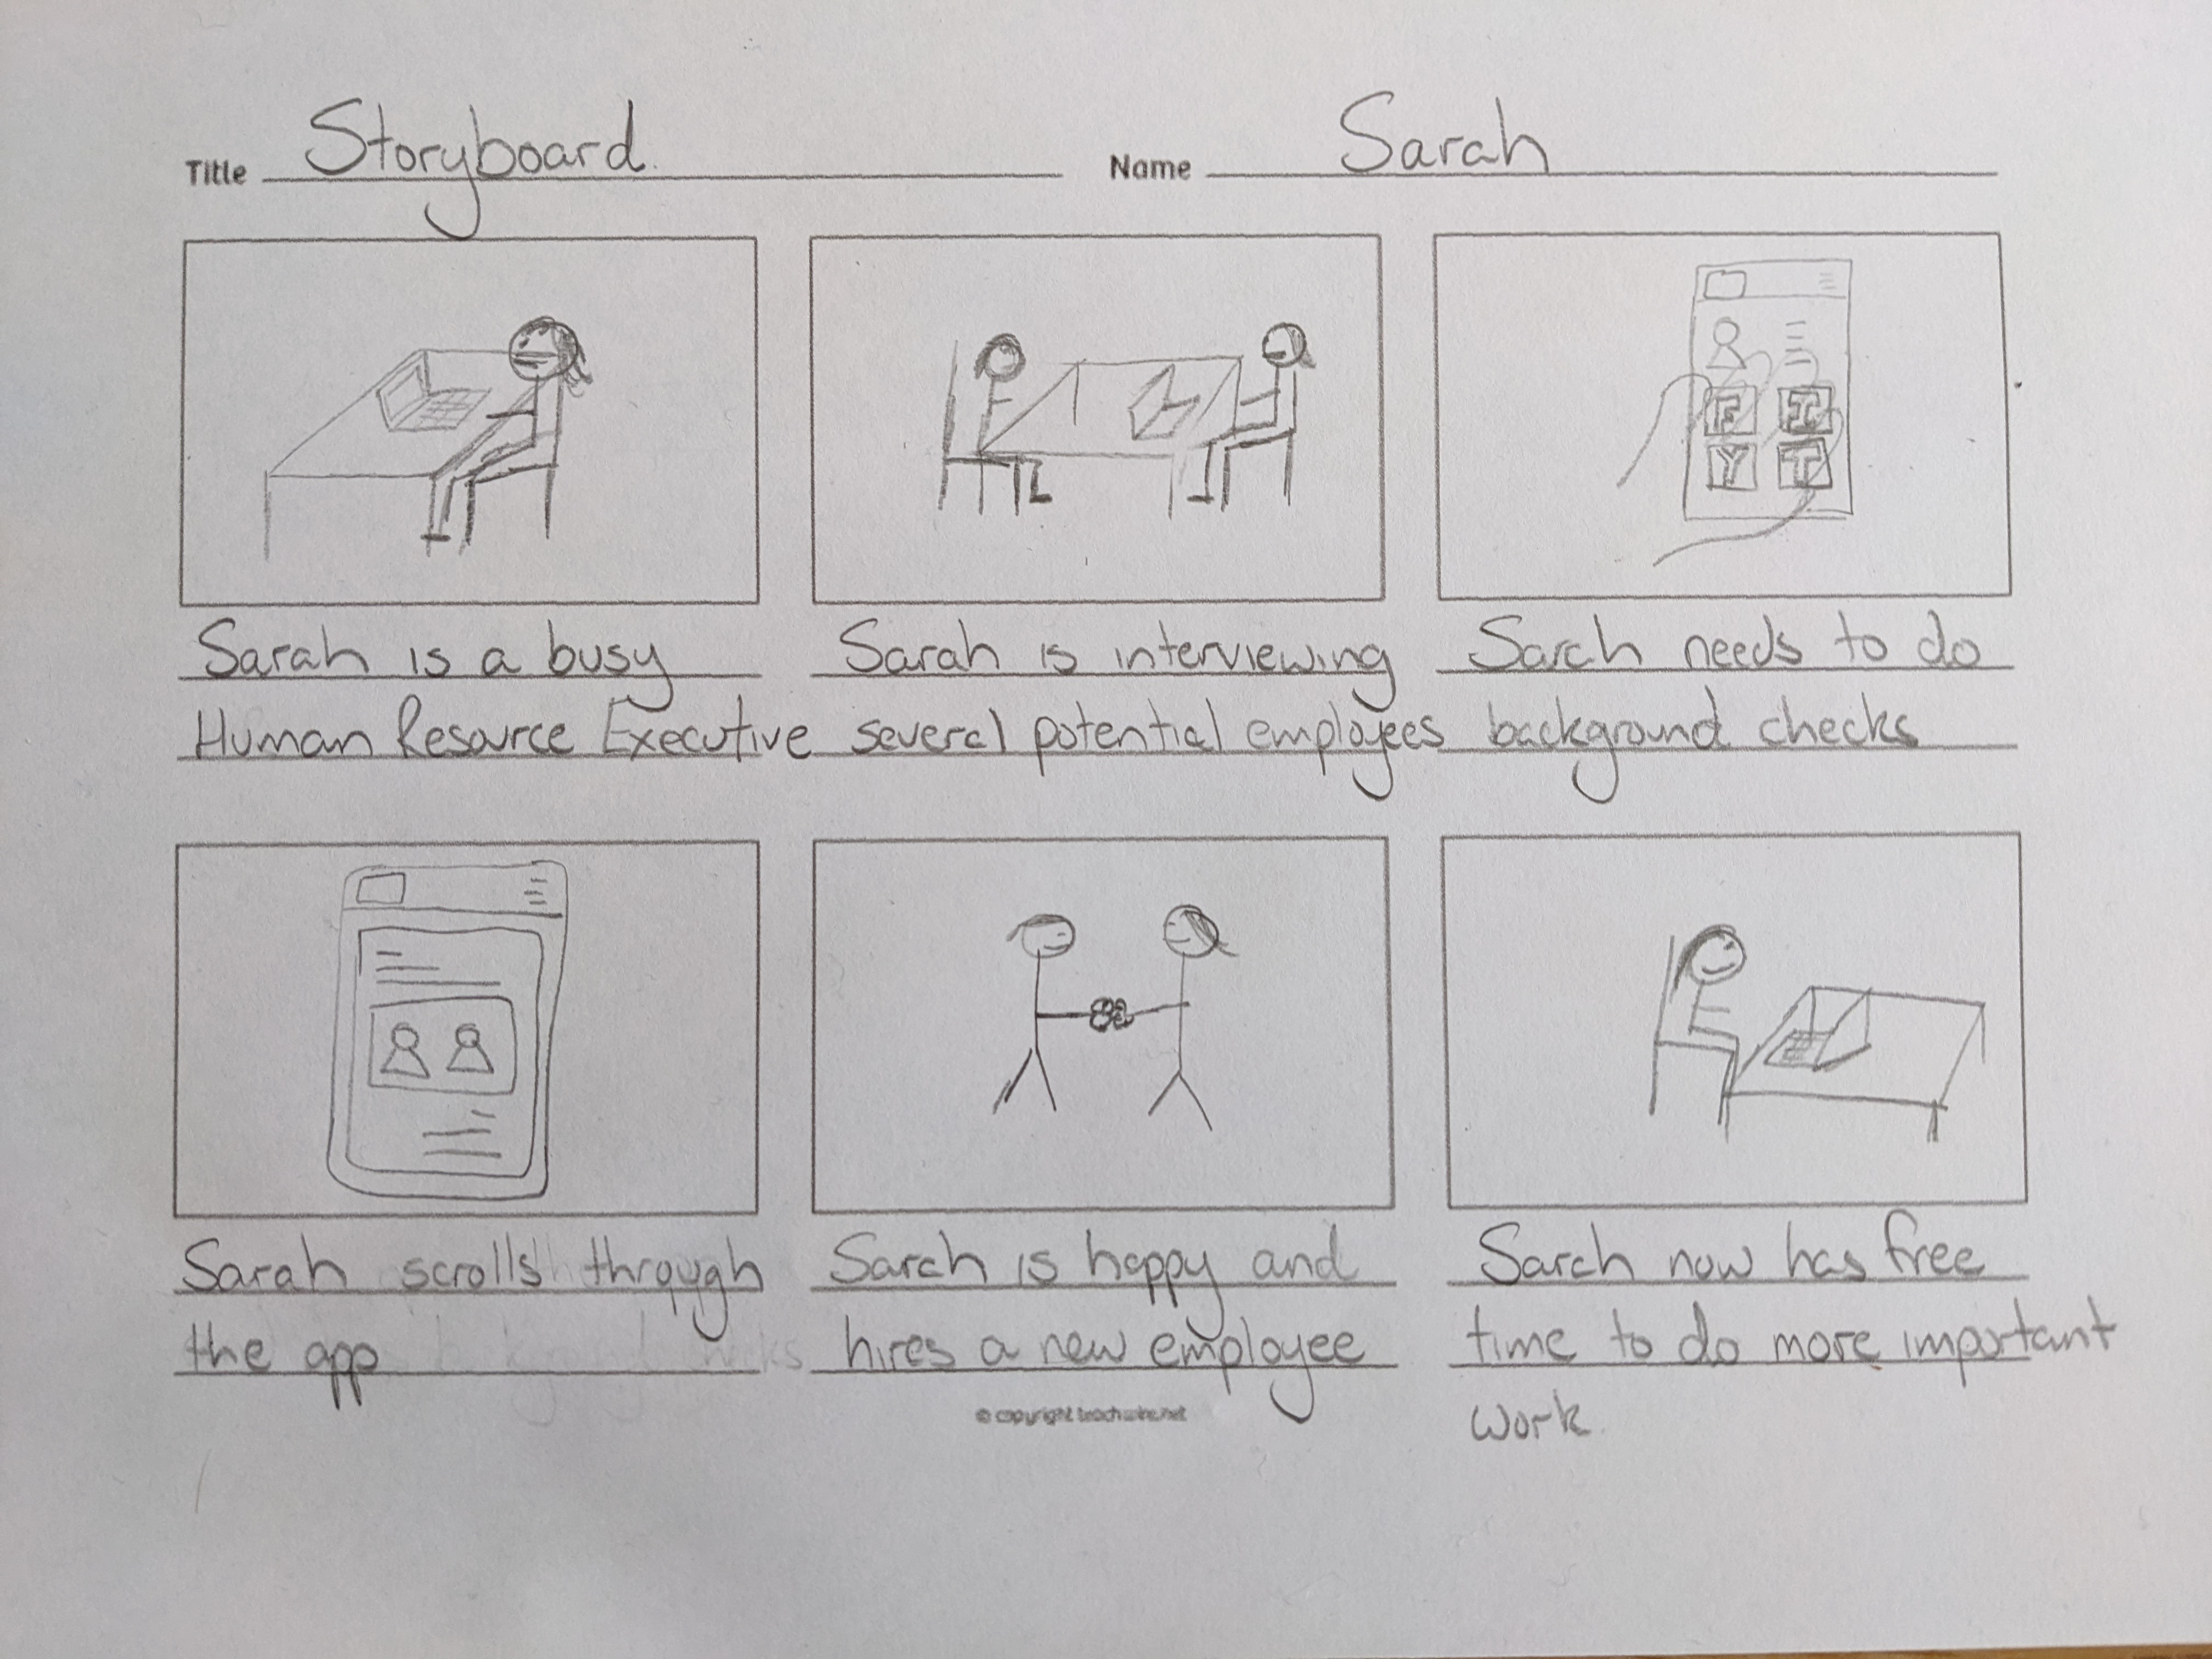 Title Storyboard.
Name Sarah
F I
Y T
Sarah is a busy
Human Resource Executive
Sarah is interviewing
several potential employees
Sarah needs to do
background checks
Sarah scrolls through
the app
Sarah is happy and
hires a new employee
Sarah now has free
time to do more important
work.
© copyright